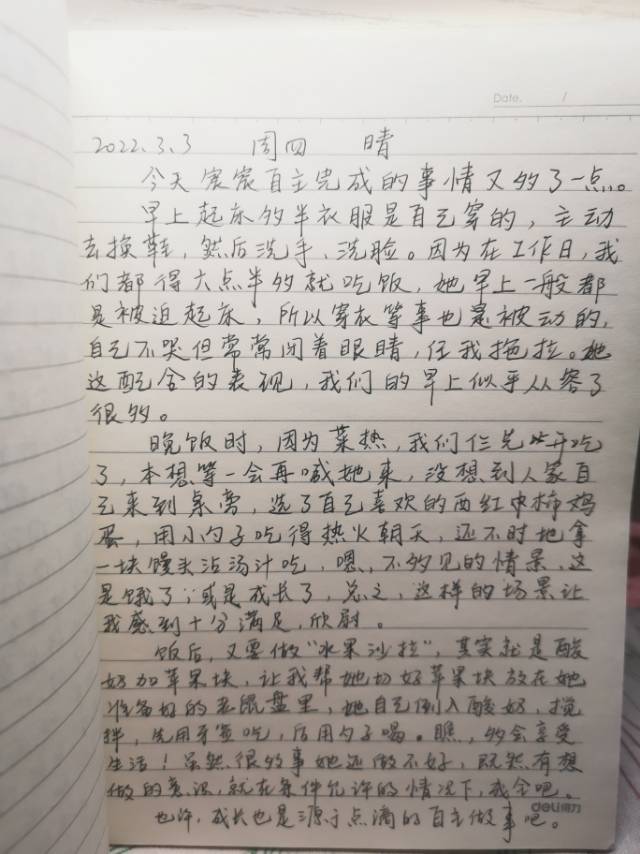 Date. /
2022.3.3 周四 晴
今天宸宸自主完成的事情又多了一点。
早上起床的半衣服是自己穿的，主动
去换鞋，然后洗手、洗脸。因为在工作日，我
们都得六点半多就吃饭，她早上一般都
是被迫起床，所以穿衣等事也是被动的，
自己不哭但常常闭着眼睛，任我拖拉。她
这配合的表现，我们的早上似乎从容了
很多。
晚饭时，因为菜热，我们仨先开吃
了，本想等一会再喊她来，没想到人家自
己来到桌旁，选了自己喜欢的西红柿鸡
蛋，用小勺子吃得热火朝天，还不时地拿
一块馒头沾汤汁吃，嗯，不多见的情景，这
是饿了；或是成长了，总之，这样的场景让
我感到十分满足，欣慰。
饭后，又要做“水果沙拉”，其实就是酸
奶加苹果块，让我帮她切好苹果块放在她
准备好的老鼠盘里，她自己倒入酸奶，搅
拌，先用牙签吃，后用勺子喝。瞧，多会享受
生活！虽然很多事她还做不好，既然有想
做的意识，就在条件允许的情况下，成全吧。
deli得力
也许，成长也是源于点滴的自主做事吧。